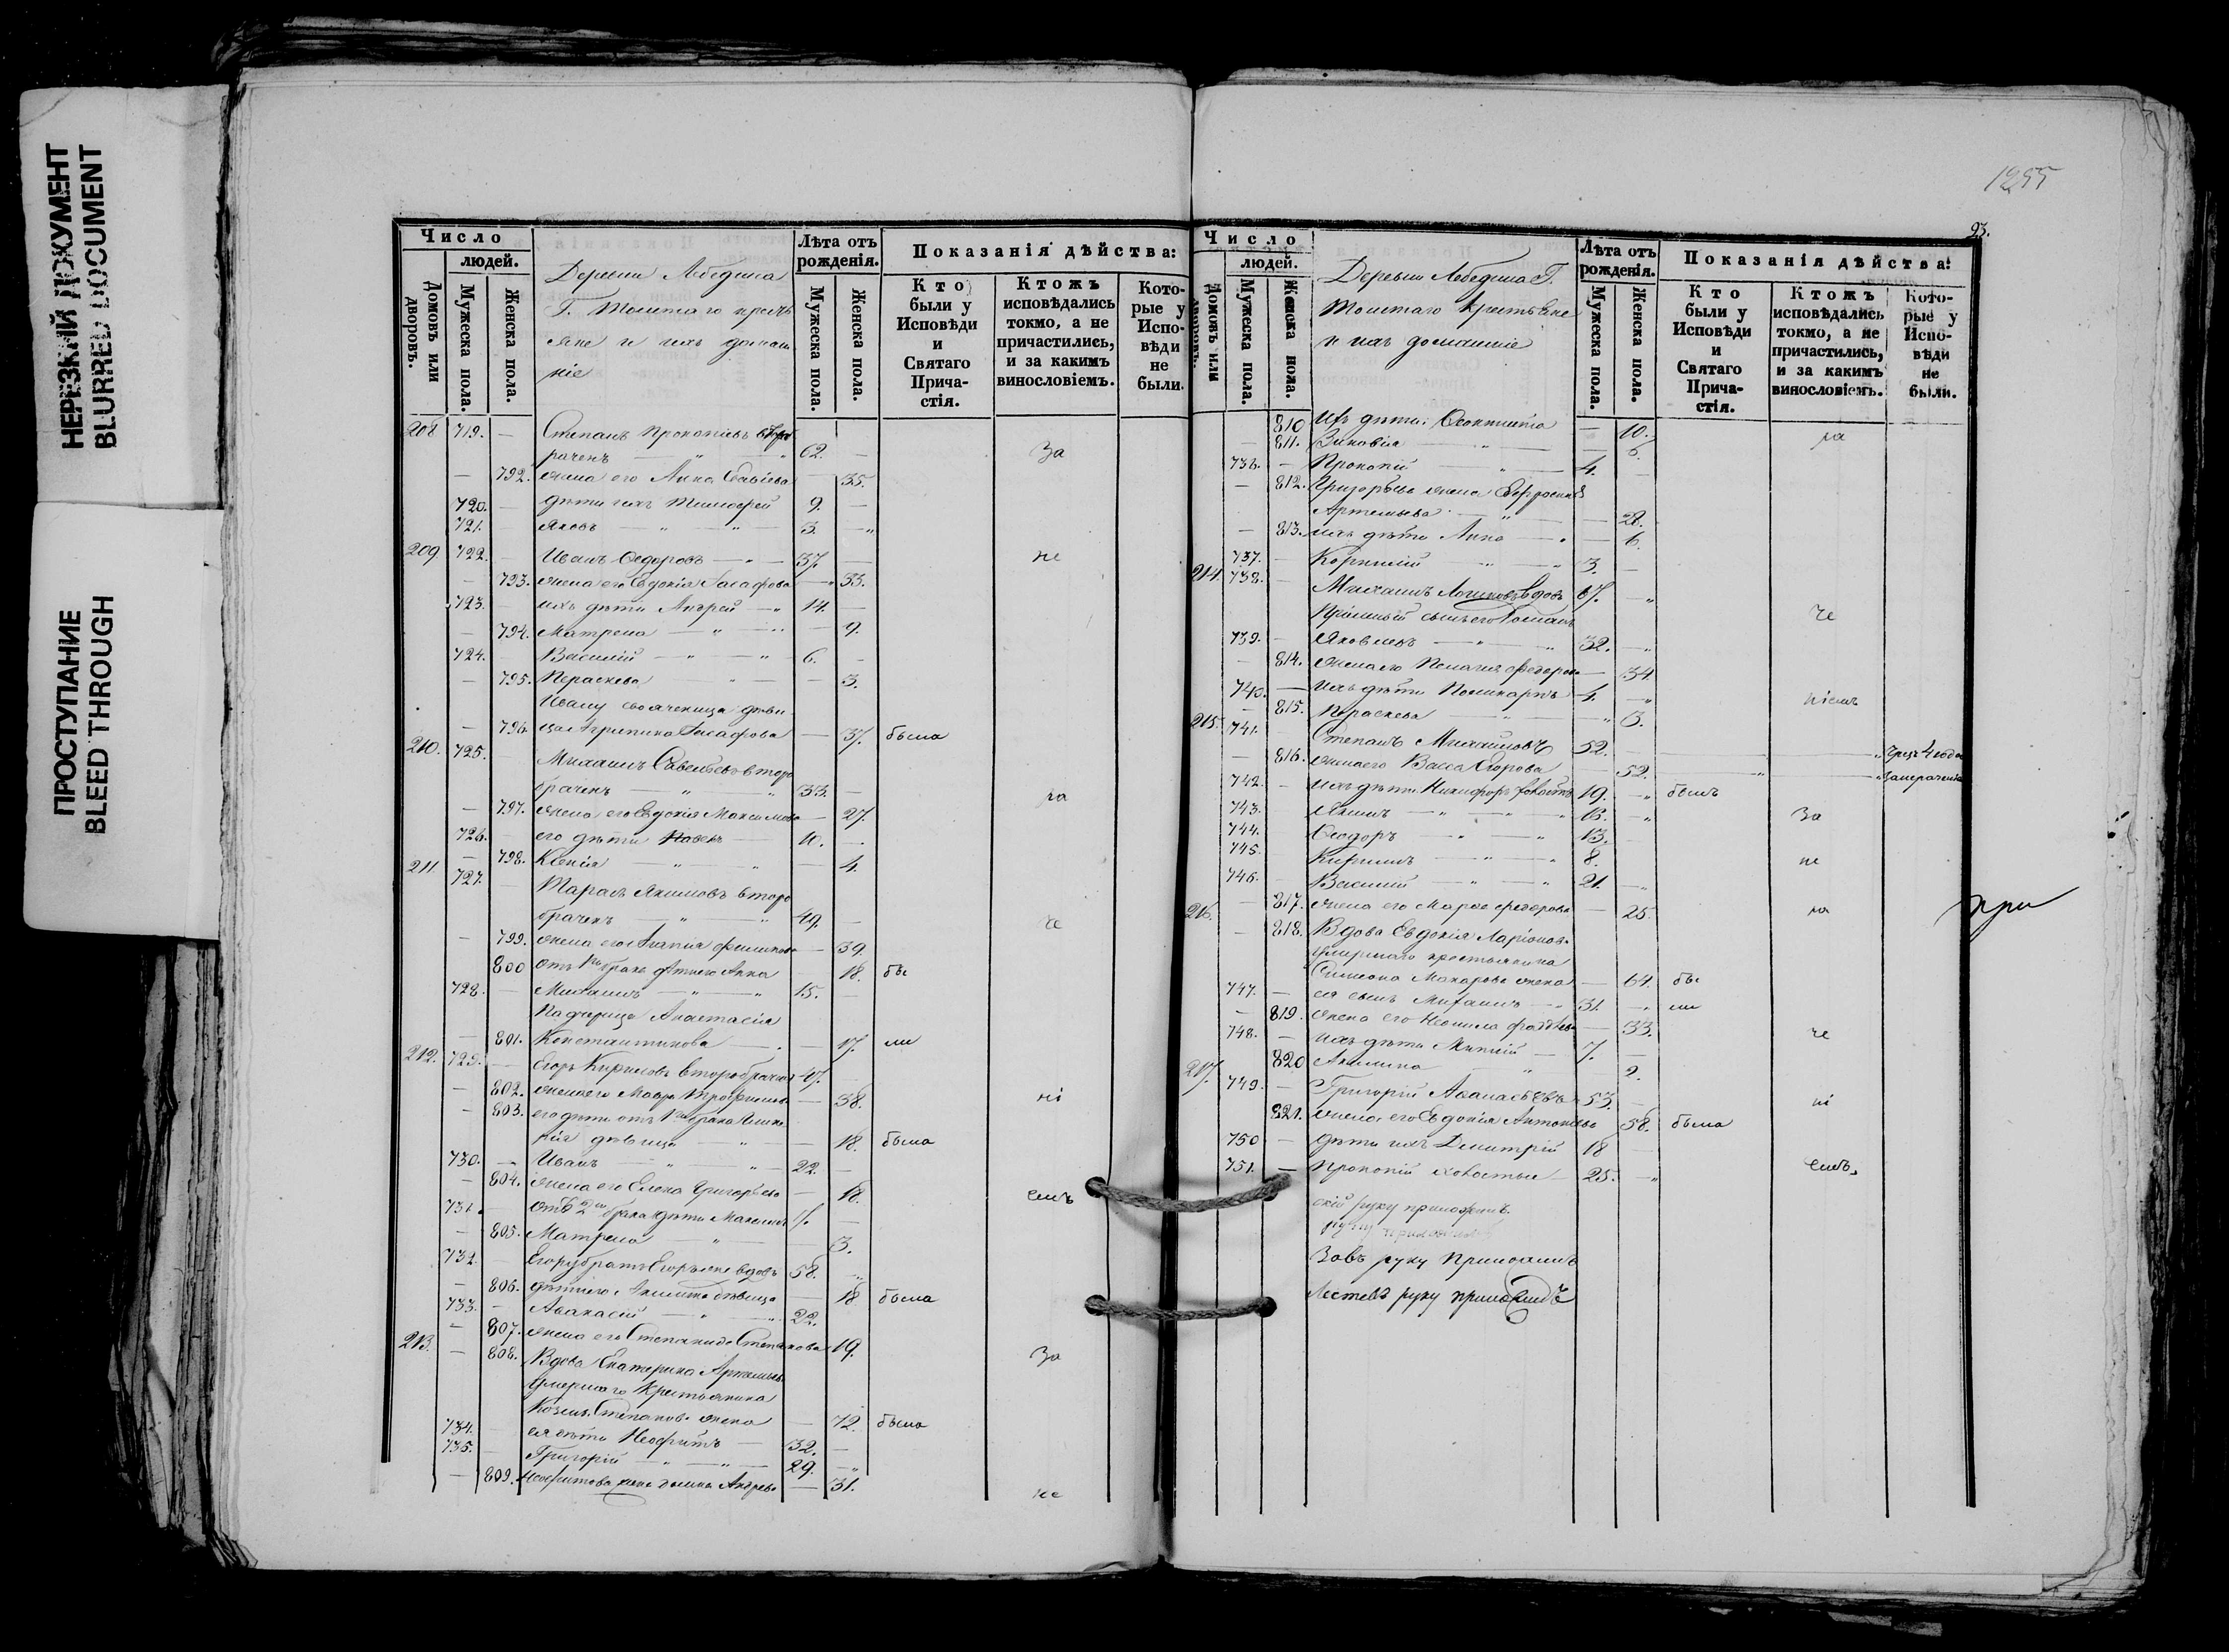 НЕРЕЗКИЙ ДОКУМЕНТ
BLURRED DOCUMENT
ПРОСТУПАНИЕ
BLEED THROUGH
Число
людей.
Домовъ или дворовъ.
Мужеска пола.
Женска пола.
Деревни Лебедина
Г. Толстаго крестъ
яне и ихъ домаш
ніе
Лѣта отъ рожденія.
Мужеска пола.
Женска пола.
Показанія дѣйства:
Кто были у Исповѣди и Святаго Причастія.
Ктожъ исповѣдались токмо, а не причастились, и за какимъ винословіемъ.
Которые у Исповѣди не были.
208 719. — Степанъ Прокопіевъ
раченъ 62. — За
— 792. жена его Анна 35.
720. — дѣти ихъ Тимофей 9. —
721. Яковъ 3. —
209 722. — Иванъ Федоровъ 37. — не
— 793. жена его Евдокія Іасафова 33.
723. — ихъ дѣти Андрей 14. —
— 794. Матрена — 9.
724. — Василій 6. —
— 795. Параскева — 3.
Ивану своячница дѣви
— 796. ца Агрипина Іасафова — 37. была
210. 725. Михаилъ Савельевъ второ
браченъ 33. — ла
— 797. жена его Евдокія Максимова — 27.
726. — его дѣти Павелъ 10. —
— 798. Ксенія — 4.
211 727. — Тарасъ Якимовъ второ
браченъ 49. —
— 799. жена его 39.
800 отъ 1го брака дѣти его Анна — 18. бы
728. — Михаилъ 15. —
Падчерица Анастасія
— 801. Константинова — 17. ли
212. 729. — Егоръ Кириловъ второбрачный 47. —
— 802. жена его Мавра Трофимова — 38. ні
— 803. его дѣти отъ 1го брака
рія дѣвица — 18. была
730. — Иванъ 22. —
— 804. жена его Елена Григорьева — 18. емъ
731. — отъ 2го брака дѣти Максимъ —
— 805. Матрена — 3.
732. — Егору братъ Егоръ же вдовъ 58.
— 806. дѣти его Акилина дѣвица — 18 была
733. — Аѳанасій 22.
— 807. жена его Степанида Степанова 19.
213. — 808. Вдова Екатерина Артемьев. За
умершаго Крестьянина
Козьмы Степанов. жена — 72. была
734. — ея дѣти Неофитъ 32. —
735. — Григорій 29.
— 809. Неофитова жена Домна Андреева — 31. не
1255
23.
Число
людей.
Домовъ или дворовъ.
Мужеска пола.
Женска пола.
Деревни Лебедина Г.
Толстаго Крестьяне
и ихъ домашніе
Лѣта отъ рожденія.
Мужеска пола.
Женска пола.
Показанія дѣйства:
Кто были у Исповѣди и Святаго Причастія.
Ктожъ исповѣдались токмо, а не причастились, и за какимъ винословіемъ.
Которые у Исповѣди не были.
810 Ихъ дѣти: — 10. ла
— 811. Зиновія — 6.
736. — Прокопій 4. —
— 812. Григорьева жена Ефросинія
Артемьева — 28.
— 813. ихъ дѣти Анна — 6.
737. — Корнилій 3. —
214. 738. — Михаилъ Логиновъ вдовъ 67.
Пріемный сынъ его че
739. — Яковлевъ 32.
— 814. жена его Пелагия Федорова — 34
740. — Ихъ дѣти Поликарпъ 4. ніемъ
— 815. Параскева 3.
215. 741. Степанъ Михайловъ 52. —
— 816. жена его Васса Егорова — 52.
742. — ихъ дѣти Никифоръ холостъ 19. былъ
743. — Якимъ 16. За
744. Ѳеодоръ 13.
745. Кирилъ 8. не
746. — Василій 21.
— 817. жена его Марѳа Федорова — 25. ла
216. — 818. Вдова Евдокія Ларіонов.
умершаго крестьянина
Симеона Макарова жена — 64. бы
747. — ея сынъ Михаилъ 31. ли
— 819. жена его Неонила Фадѣева — 33. че
748. — ихъ дѣти 7. —
820 Акилина 2.
217. 749. — Григорій Аѳанасьевъ 53. — ні
821. жена его Евдокія Антоньева 58. была
750 — дѣти ихъ Димитрій 18 —
751. — Прокопій холостые 25. емъ.
скій руку приложилъ.
Зовъ руку Приложилъ
Лестевъ руку приложилъ
при